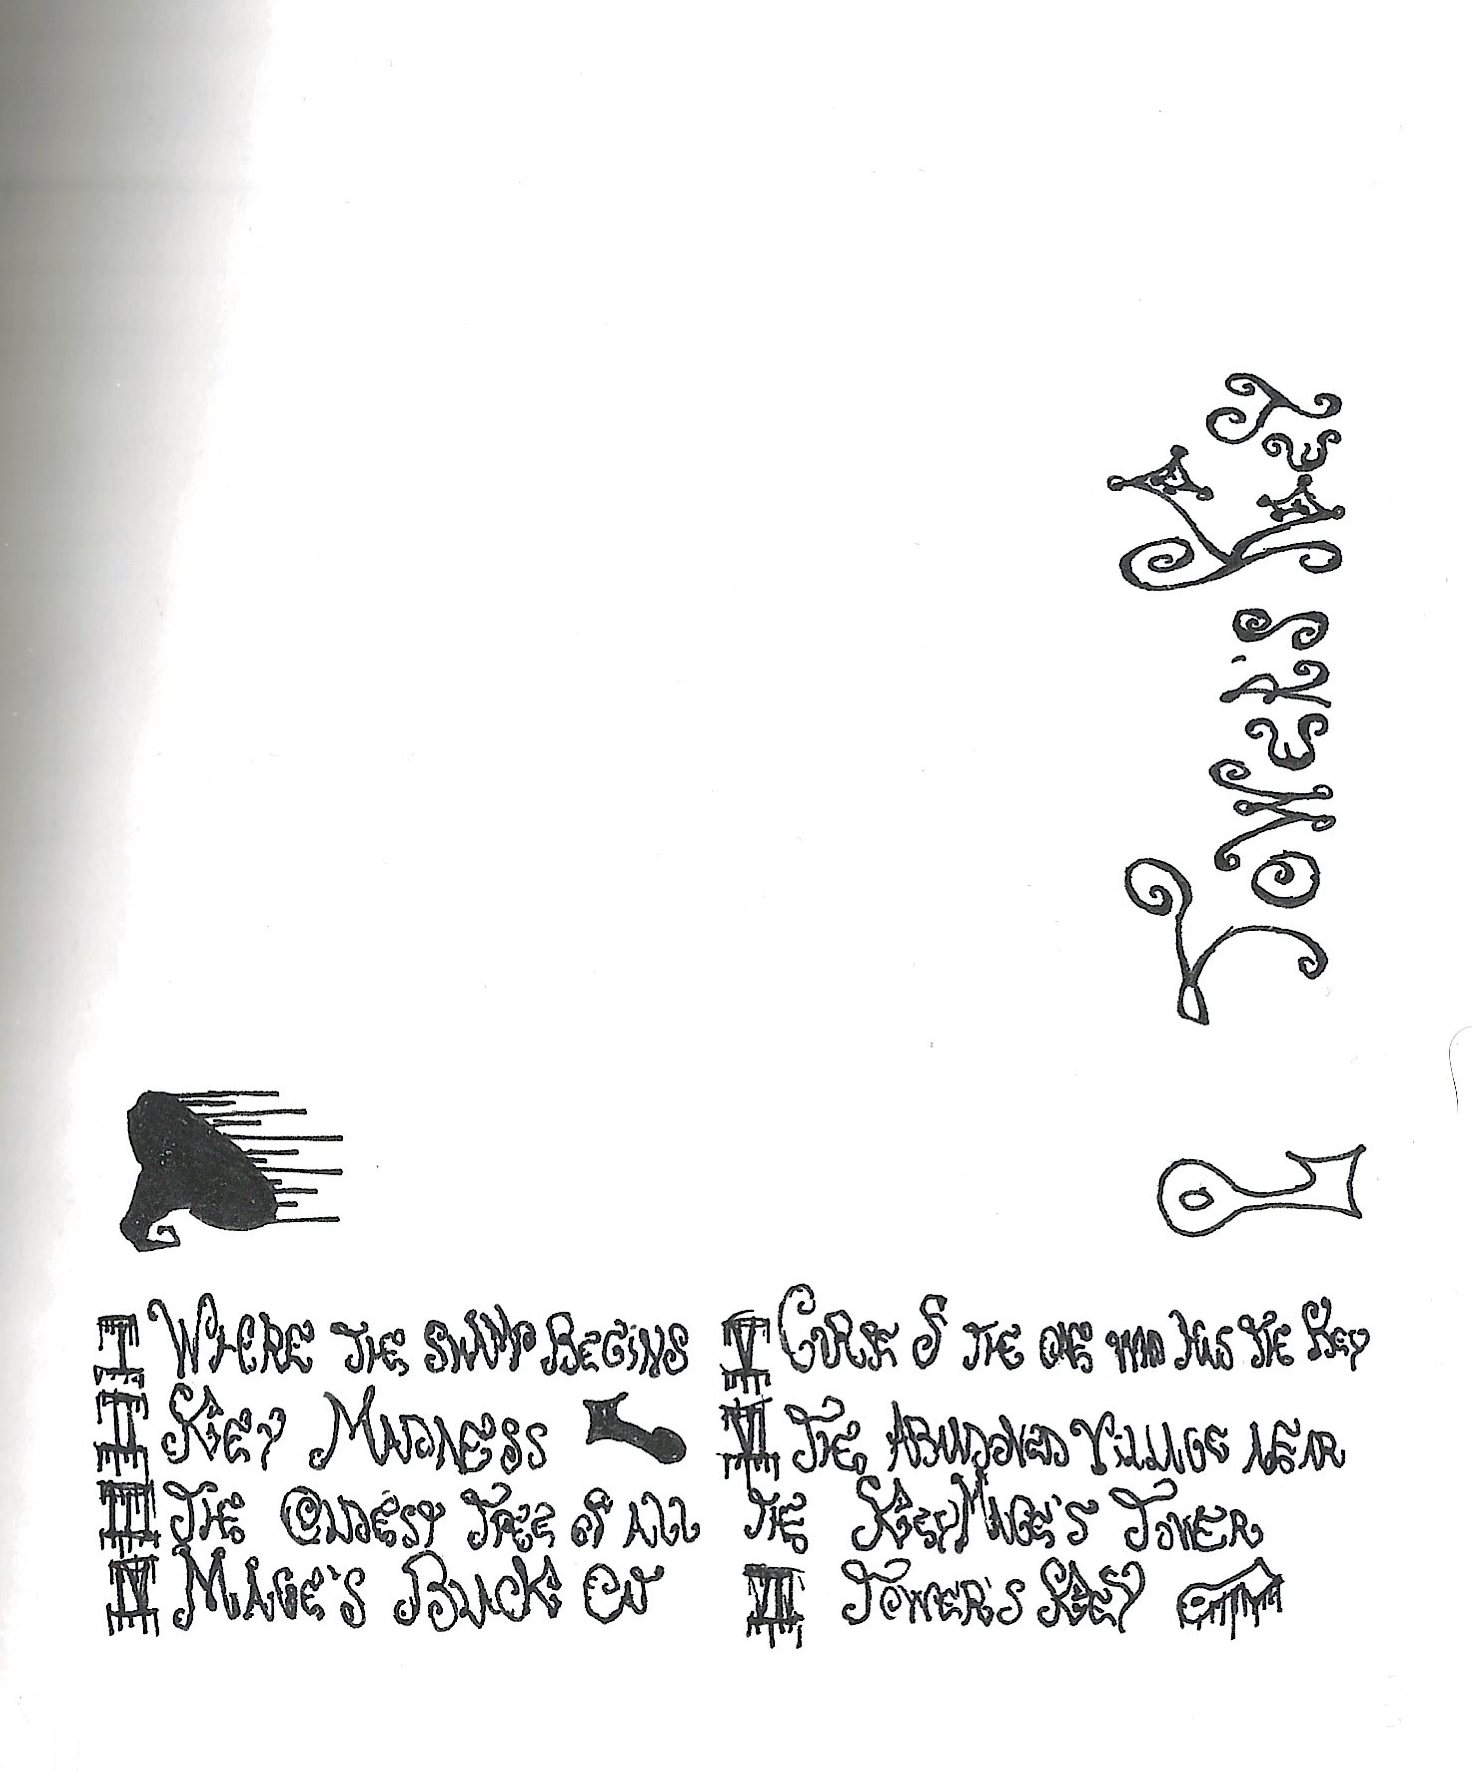 Tower's Key
I Where the Swamp Begins
II Key Madness
III The Oldest Tree of All
IV Mage's Black Cat
V Curse of the one who has the Key
VI The Abandoned Village near
the KeyMage's Tower
VII Tower's Key